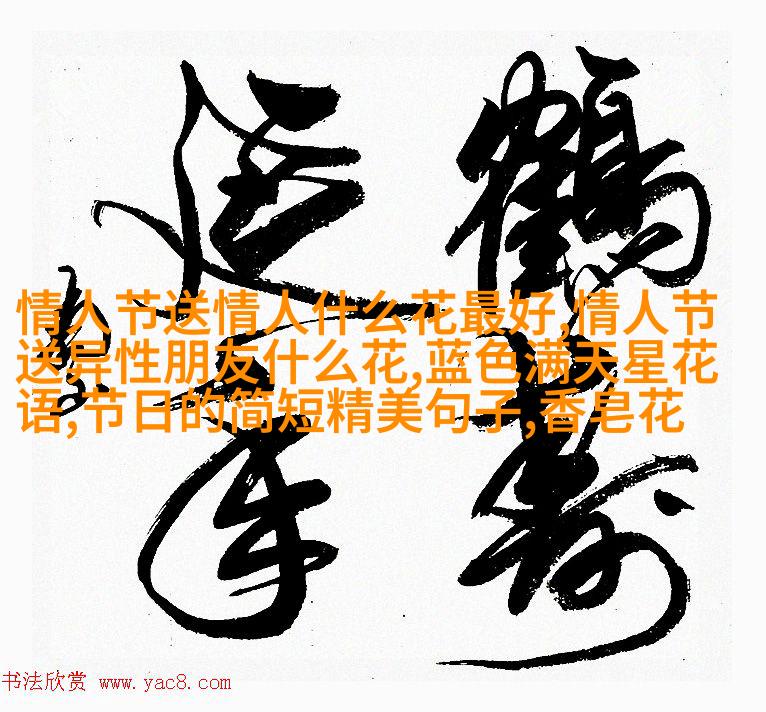 鹤寿
延年
情人节送情人什么花最好,情人节
送异性朋友什么花,蓝色满天星花
语,节日的简短精美句子,香皂花
书法欣赏 www.yac8.com